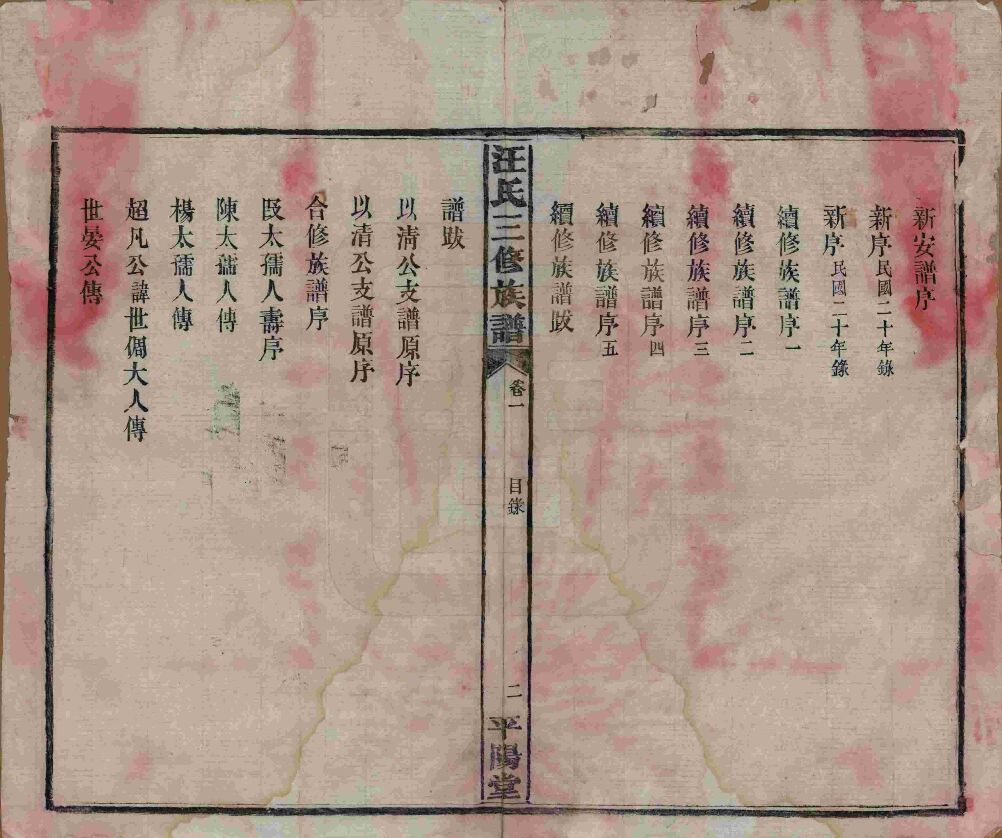 新安譜序
新序民國二十年錄
新序民國二十年錄
續修族譜序一
續修族譜序二
續修族譜序三
續修族譜序四
續修族譜序五
續修族譜跋
汪氏三修族譜 卷一 目錄 二 平陽堂
譜跋
以清公支譜原序
以清公支譜原序
合修族譜序
段太孺人壽序
陳太孺人傳
楊太孺人傳
超凡公諱世倜大人傳
世晏公傳